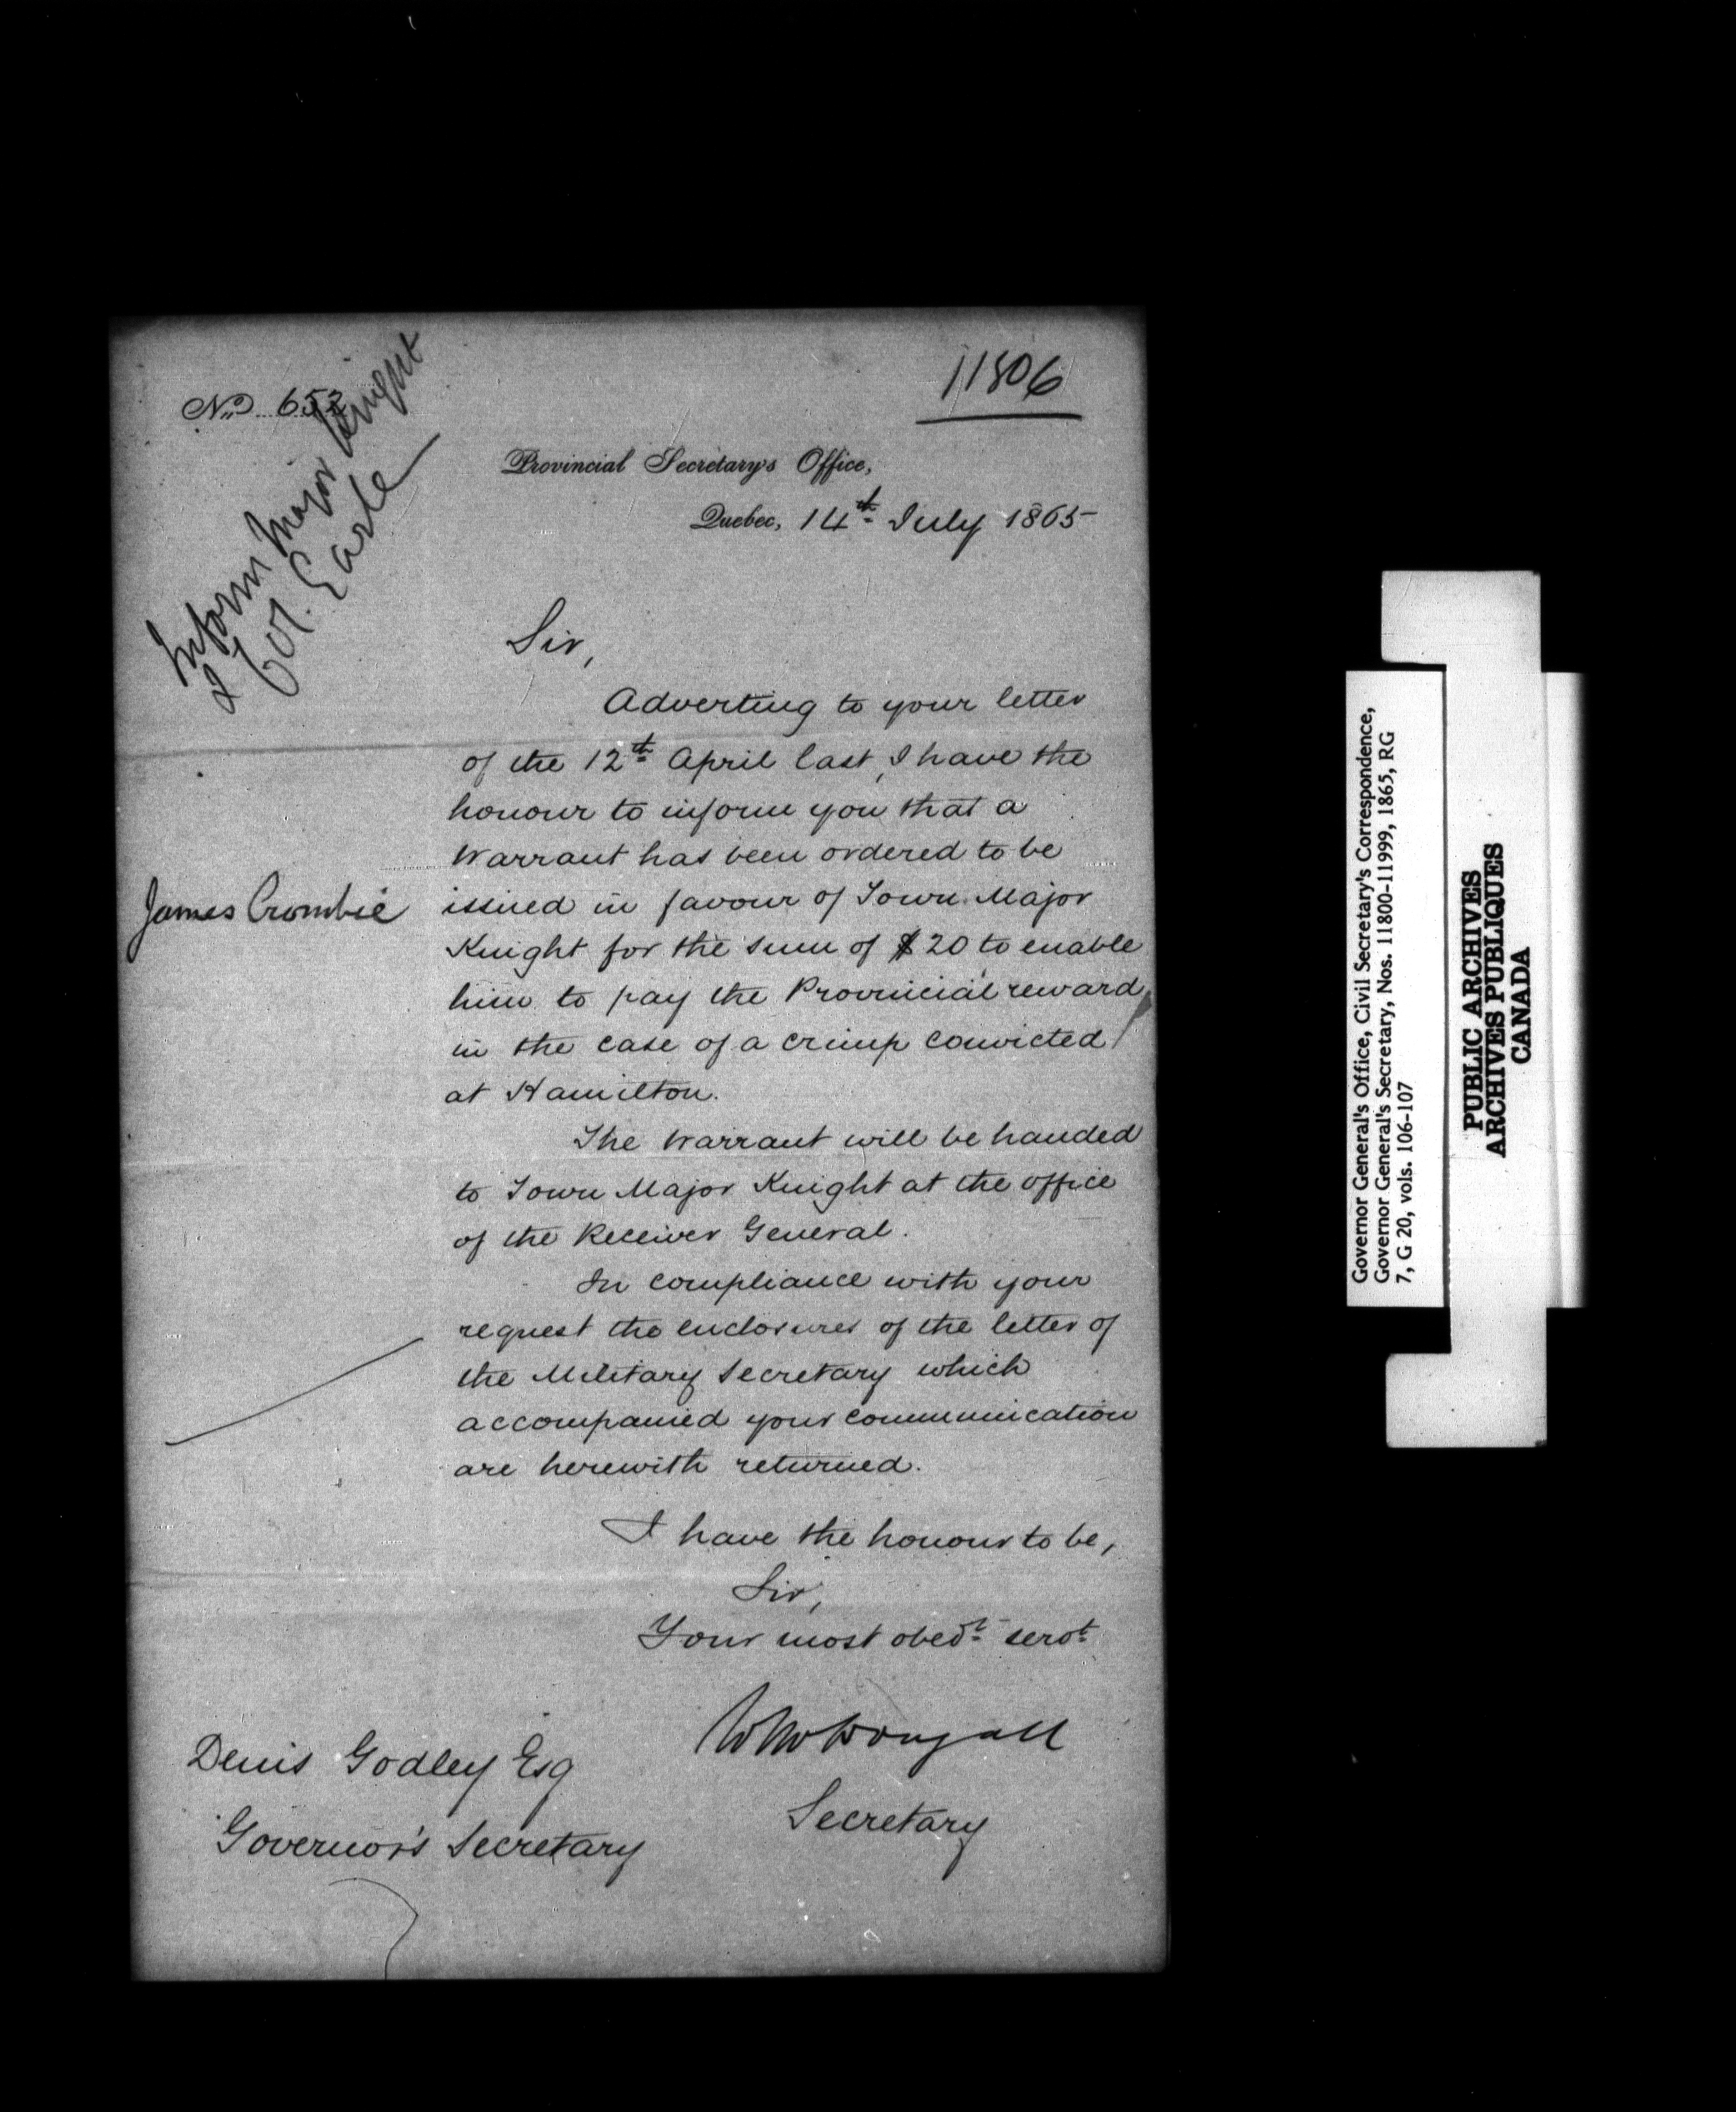 No 652
11806
Inform Major Knight
& Col. Earle
Provincial Secretary's Office,
Quebec, 14th July 1865
Sir,
Adverting to your letter
of the 12th April last, I have the
honour to inform you that a
Warrant has been ordered to be
James Crombie
issued in favour of Town Major
Knight for the sum of $20 to enable
him to pay the Provincial reward
in the case of a crimp convicted
at Hamilton.
The Warrant will be handed
to Town Major Knight at the office
of the Receiver General.
In compliance with your
request the enclosures of the letter of
the Military Secretary which
accompanied your communication
are herewith returned.
I have the honour to be,
Sir,
Your most obedt. servt.
W McDougall
Secretary
Denis Godley Esq
Governor's Secretary
Governor General's Office, Civil Secretary's Correspondence,
Governor General's Secretary, Nos. 11800-11999, 1865, RG
7, G 20, vols. 106-107
PUBLIC ARCHIVES
ARCHIVES PUBLIQUES
CANADA